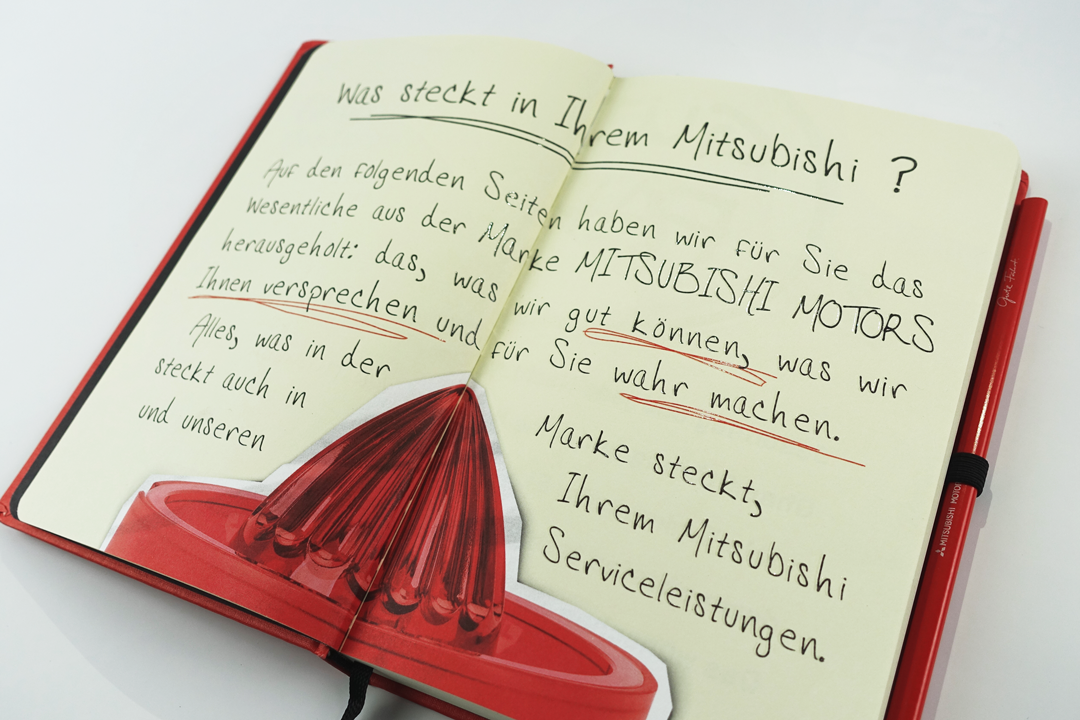 Was steckt in Ihrem Mitsubishi ?
Auf den folgenden Seiten haben wir für Sie das
Wesentliche aus der Marke MITSUBISHI MOTORS
herausgeholt: das, was wir gut können, was wir
Ihnen versprechen und für Sie wahr machen.
Alles, was in der Marke steckt,
steckt auch in Ihrem Mitsubishi
und unseren Serviceleistungen.
MITSUBISHI MOTORS
Gute Fahrt